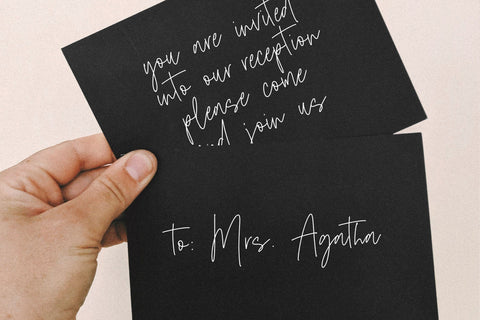 you are invited
into our reception
please come
...d join us
to: Mrs. Agatha